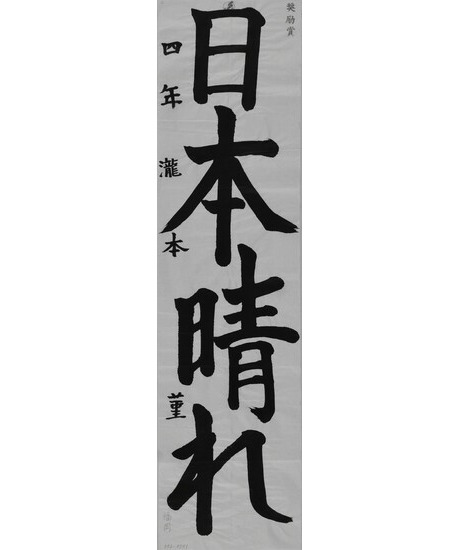 奨励賞
日本晴れ
四年 瀧本 菫